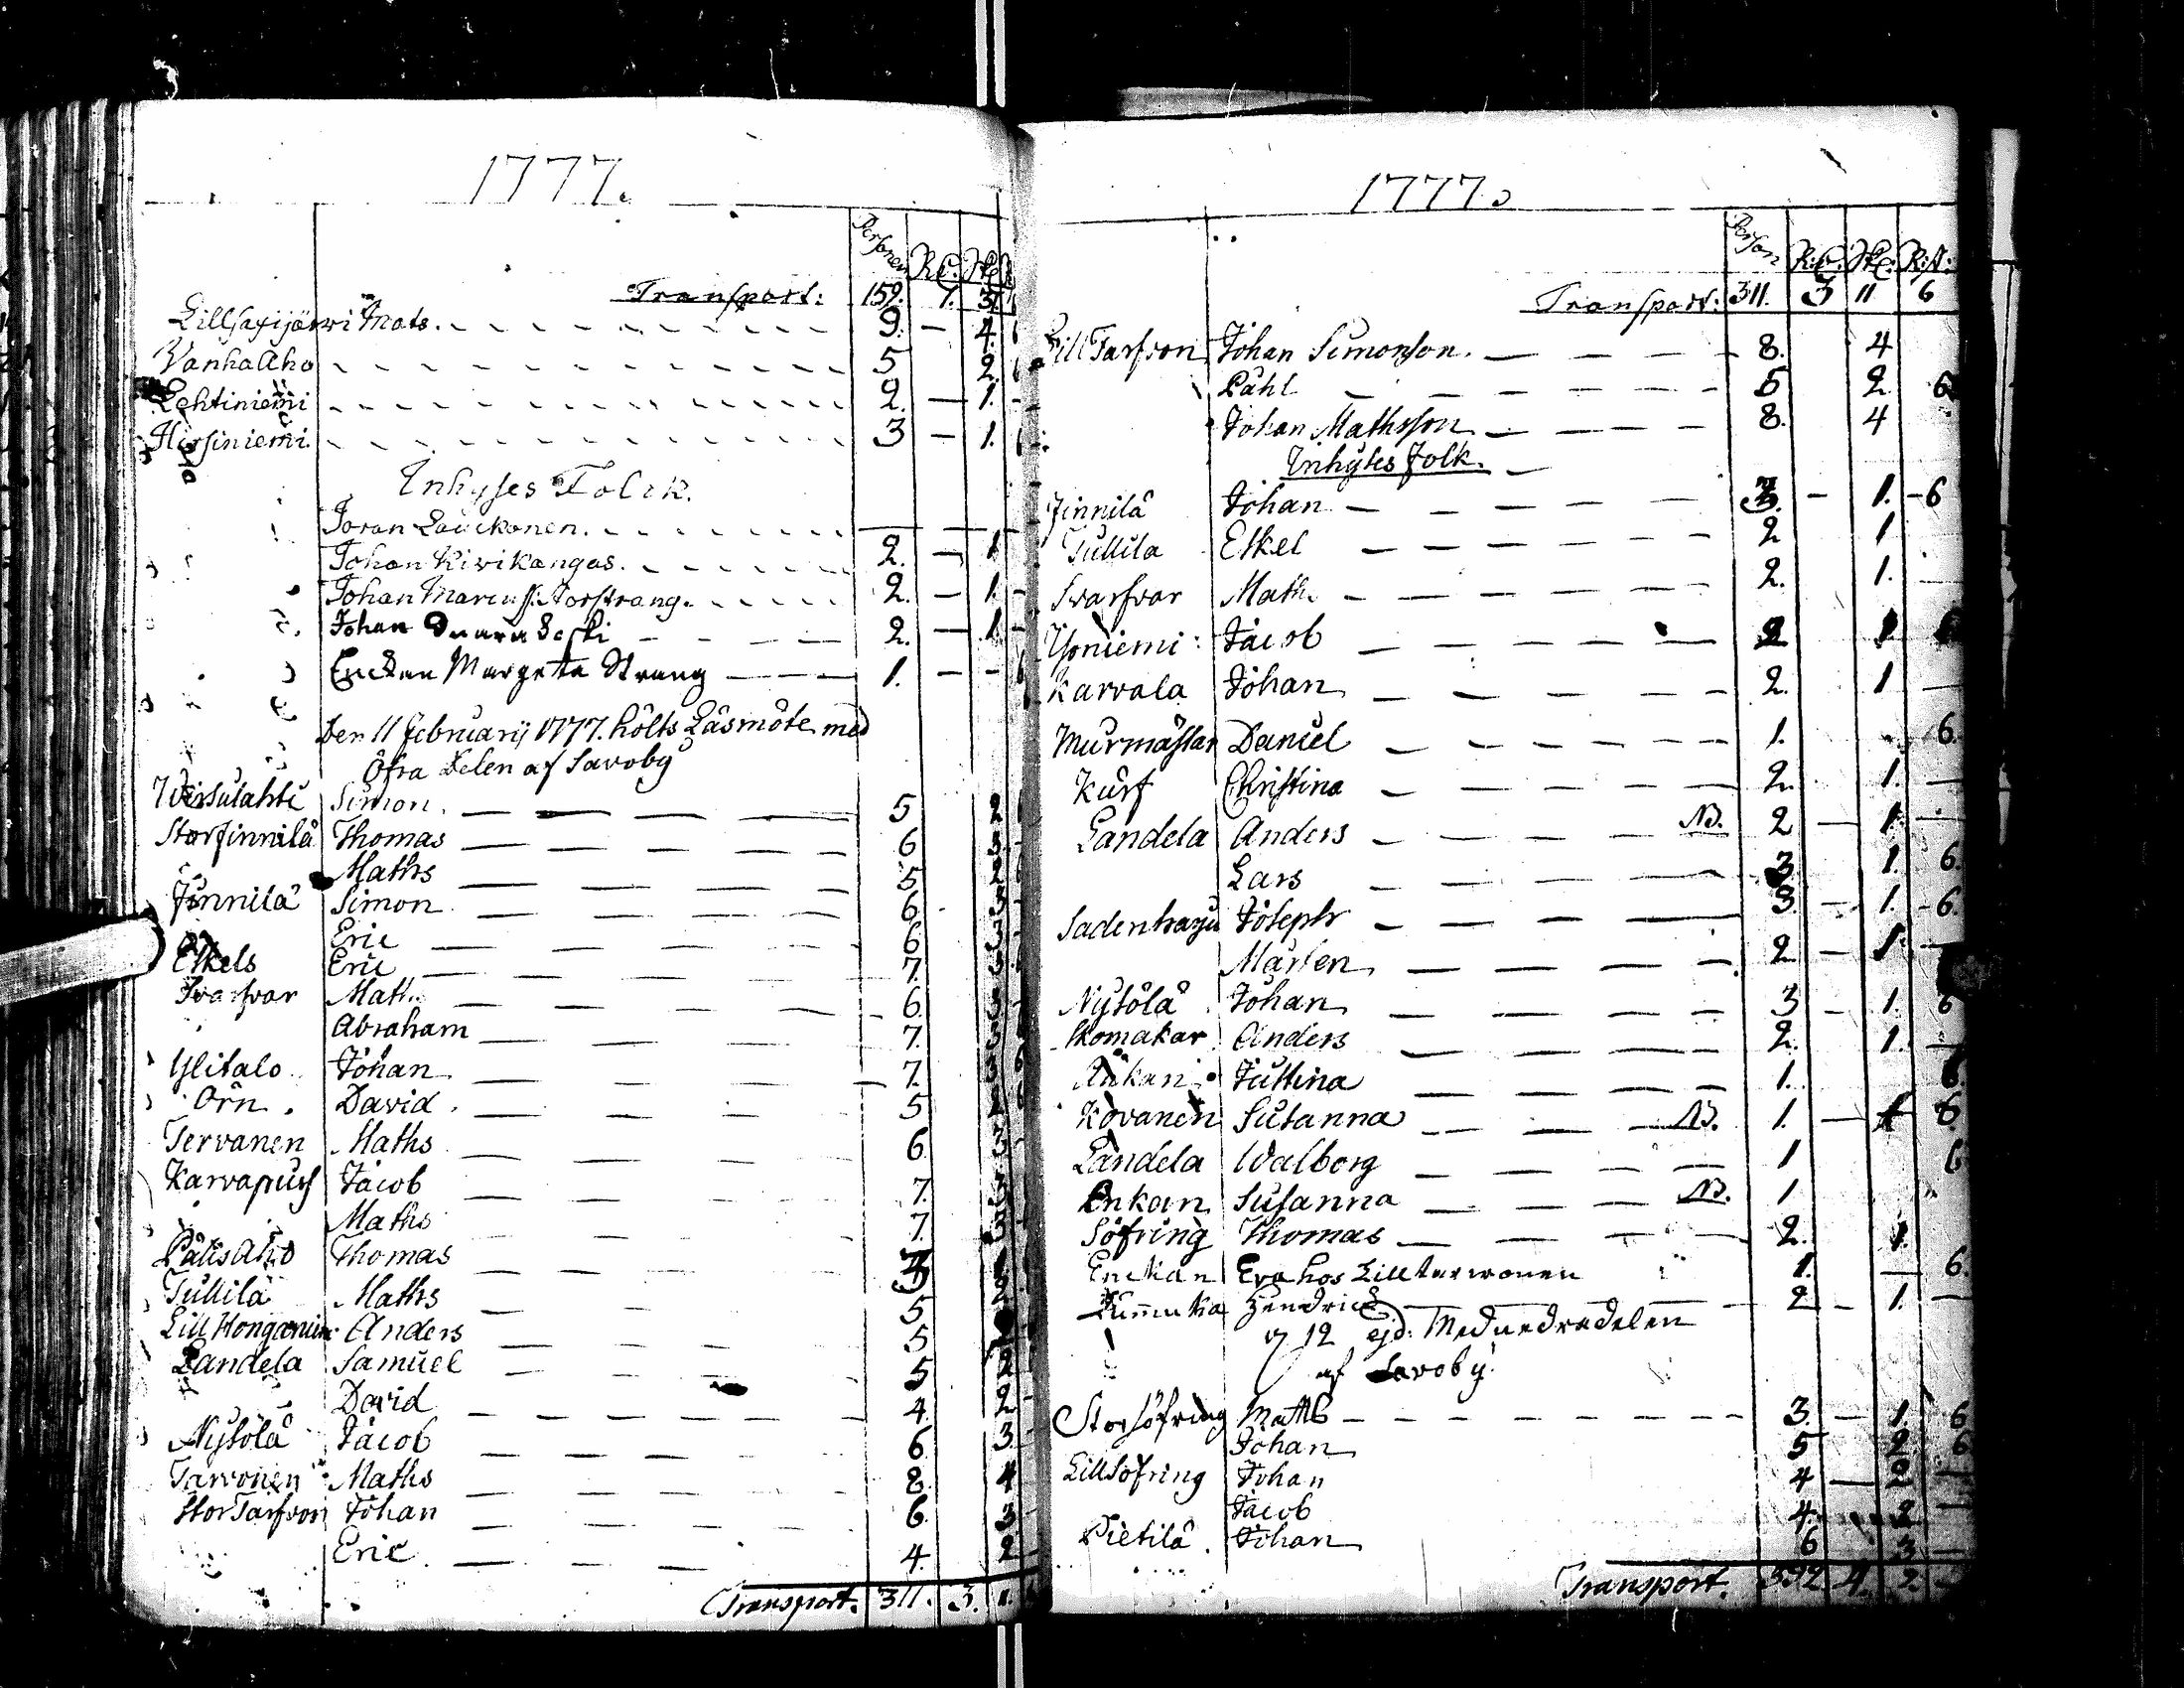 1777.
Personer R:l: Sk:
Transport: 159. 1. 31
Lillsaxijärwi Mats. 9. — 4.
Wanha Aho 5 2.
Lehtiniemi 2. — 1.
Hirsiniemi. 3 — 1.
Inhyses Folck.
Joran Lauckonen. —
Johan Kivikangas. 2. — 1
Johan Marcuss: Torstrang. 2. — 1.
Johan 2. — 1
Enckan Margeta Strang 1. — -
Den 11 Februarij 1777. hölts Läsmöte med
Öfra Delen af Savoby
Wisulahti Simon. 5 2
Storfinnilä Thomas 6 3
Maths 5 2
Finnilä Simon 6. 3
Eric 6. 3
Eskels Eric 7. 3
Svarfvar Math. 6. 3
Abraham 7. 3
Ylitalo Johan 7. 3
Örn. David. 5 2
Tervanen Maths 6. 3
Karvapus Jacob 7. 3
Maths 7. 3
Palis Aho Thomas 3
Tullila Maths 5 2
Lill Honganiem: Anders 5
Landela Samuel 5 2
David 4. 2
Nysölä Jacob 6. 3
Tarvonen Maths 8. 4
Stor Tarfvon Johan 6. 3
Eric. 4. 2
Transport. 311. 3. 1.
1777.
Person R:l: Sk: R:st:
Transport: 311. 3 11 6
Lill Tarfvon Johan Simonson. 8. 4
Påhl 5 2 6
Johan Mathsson 8. 4
Inhyses folk.
Finnilä Johan 3. — 1. — 6
Tullila Eskel 2 1
Svarfvar Math. 2. 1. —
Yliniemi: Jacob 2 1
Karvala Johan 2. 1 —
Murmästar Daniel 1. 6.
Kurf Christina 2. 1. —
Landela Anders NB. 2 — 1. —
Lars 3 1. 6.
Joseph 3. — 1. - 6.
Mårten 2 — 1. —
Nysölä Johan 3 — 1. 6
Skomakar Anders 2. 1. —
Änkan Justina 1. 6.
Kovanen Susanna NB. 1. — 6.
Landela Walborg 1 6
Enkan Susanna NB. 1
Söfring Thomas 2. 1.
Enckan Eva hos Lill tarwonen 1. — 6.
Hendrick 2 — 1. —
d 12 ejd: Med nedradelen
af Savoby.
Storsöfring Maths 3. — 1. 6
Johan 5 2 6
Lillsöfring Johan 4 — 2 —
Jacob 4. 2 —
Pietilä. Johan 6 3 —
Transport. 392. 4. 2.